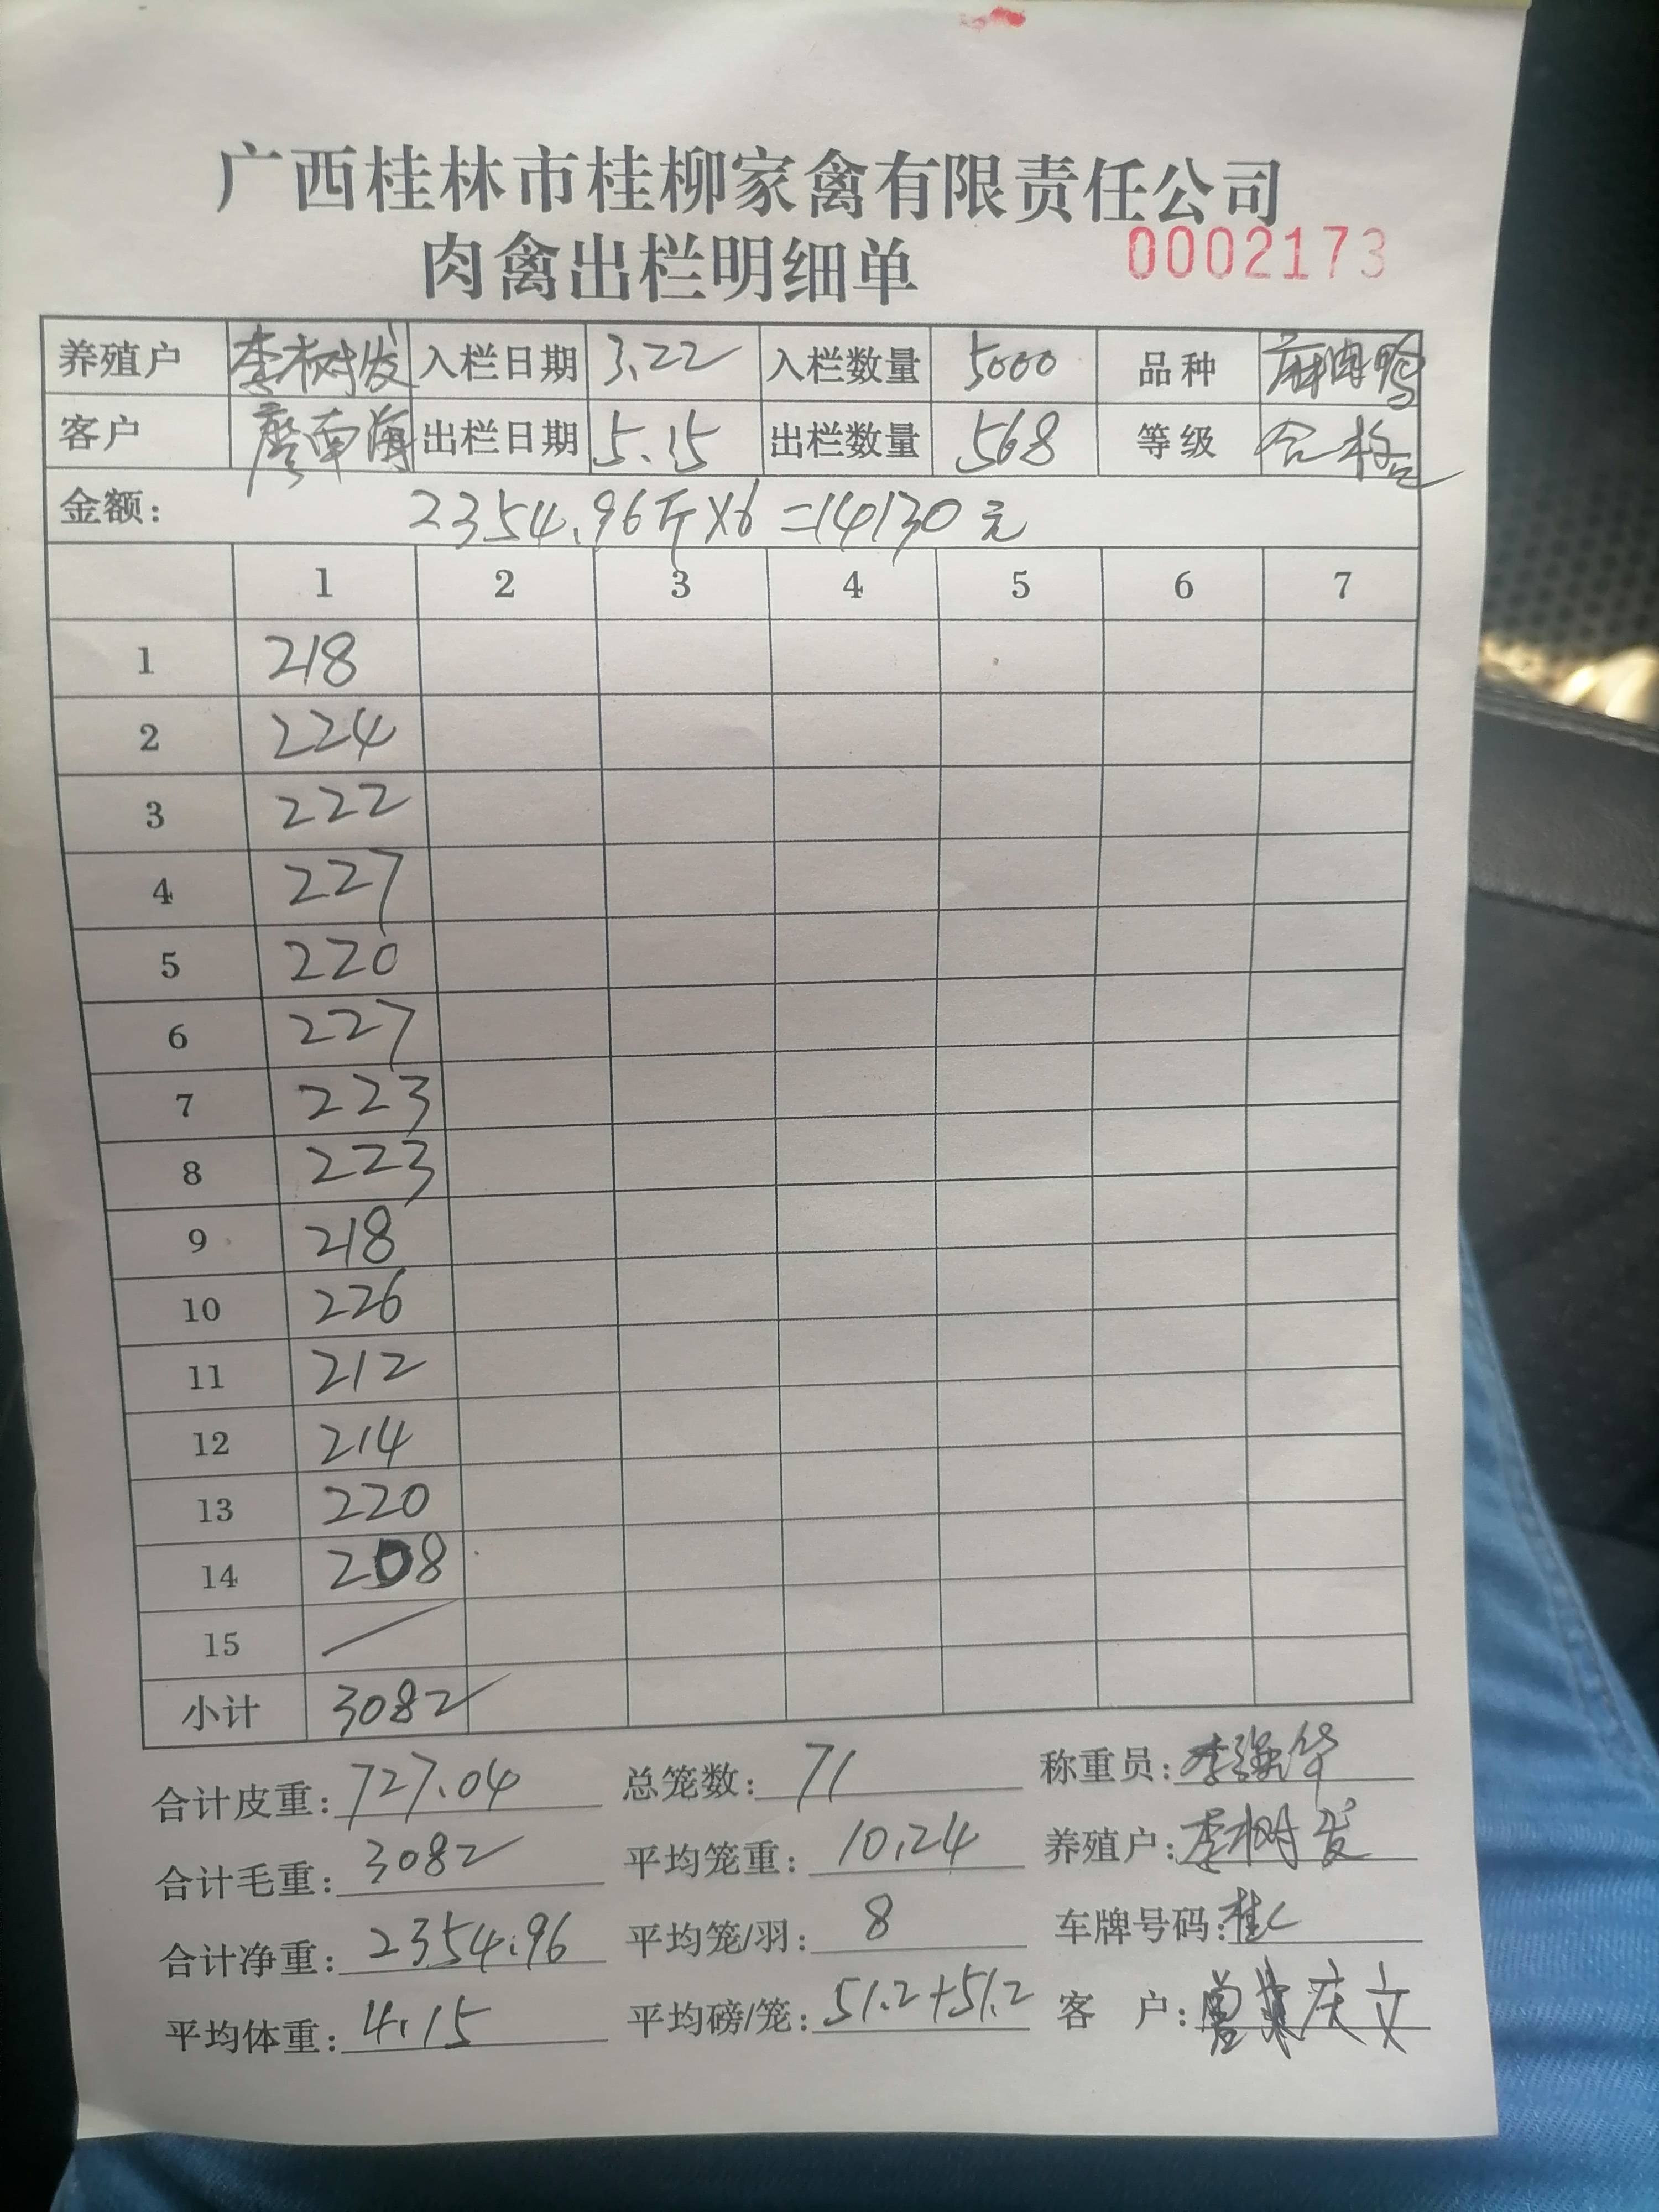 广西桂林市桂柳家禽有限责任公司
肉禽出栏明细单 0002173
养殖户 李树发 入栏日期 3.22 入栏数量 5000 品种 麻肉鸭
客户 廖南海 出栏日期 5.15 出栏数量 568 等级 合格
金额: 2354.96斤×6=14130元
1 2 3 4 5 6 7
1 218
2 224
3 222
4 227
5 220
6 227
7 223
8 223
9 218
10 226
11 212
12 214
13 220
14 208
15 /
小计 3082
合计皮重: 727.04 总笼数: 71 称重员: 李强华
合计毛重: 3082 平均笼重: 10.24 养殖户: 李树发
合计净重: 2354.96 平均笼/羽: 8 车牌号码: 桂C
平均体重: 4.15 平均磅/笼: 51.2+51.2 客 户: 庆文